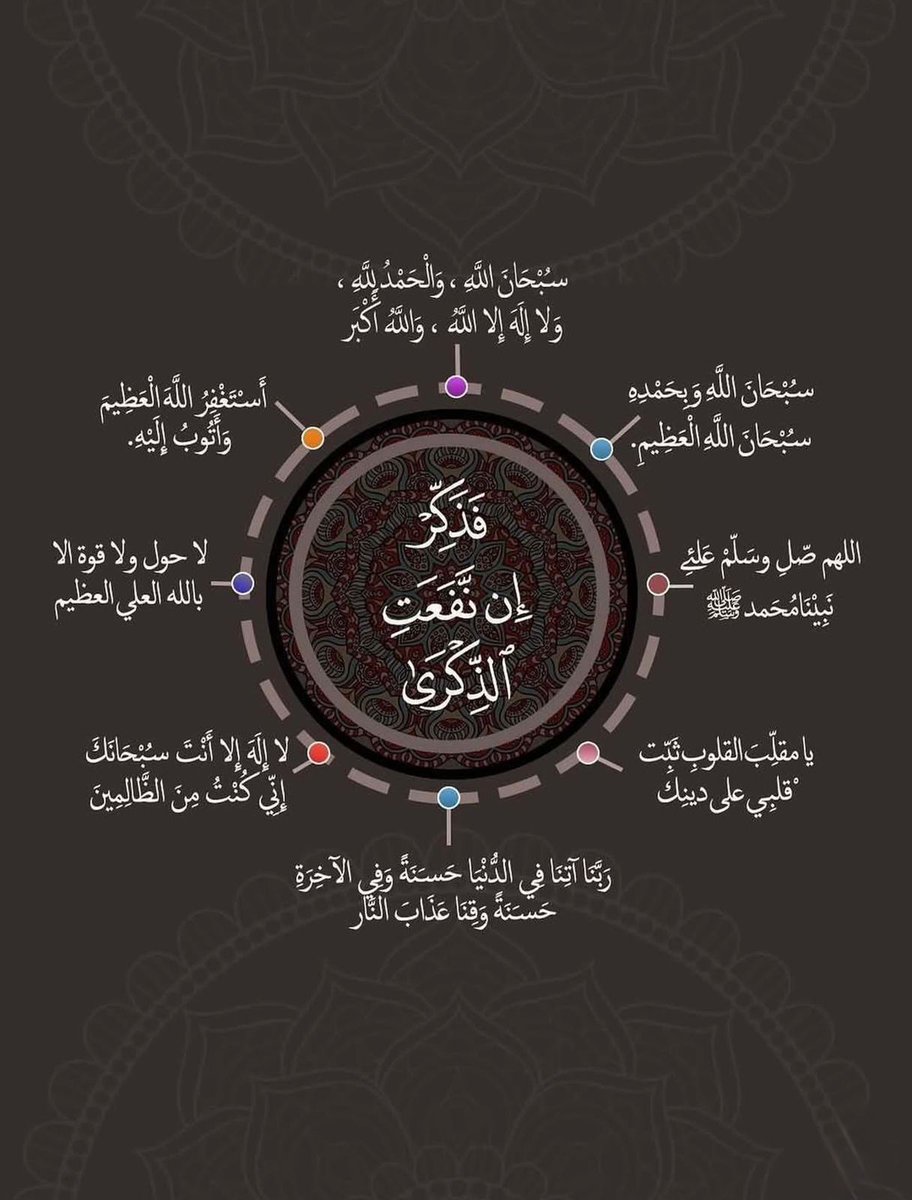 سُبْحَانَ اللَّهِ ، وَالْحَمْدُ لِلَّهِ ،
وَلا إِلَهَ إِلا اللَّهُ ، وَاللَّهُ أَكْبَر
سُبْحَانَ اللَّهِ وَبِحَمْدِهِ
سُبْحَانَ اللَّهِ الْعَظِيمِ.
اللهم صّلِ وسَلّمْ عَلئِ
نَبِيْنَا مُحَمد ﷺ
يا مقلِّبَ القلوبِ ثَبِّت
قلبِي على دينِكَْ
رَبَّنَا آتِنَا فِي الدُّنْيَا حَسَنَةً وَفِي الآخِرَةِ
حَسَنَةً وَقِنَا عَذَابَ النَّار
لا إِلَهَ إِلا أَنْتَ سُبْحَانَكَ
إِنِّي كُنْتُ مِنَ الظَّالِمِينَ
لا حول ولا قوة الا
بالله العلي العظيم
أَسْتَغْفِرُ اللَّهَ الْعَظِيمَ
وَأَتُوبُ إِلَيْهِ.
فَذَكِّرْ
إِن نَّفَعَتِ
ٱلذِّكْرَىٰ